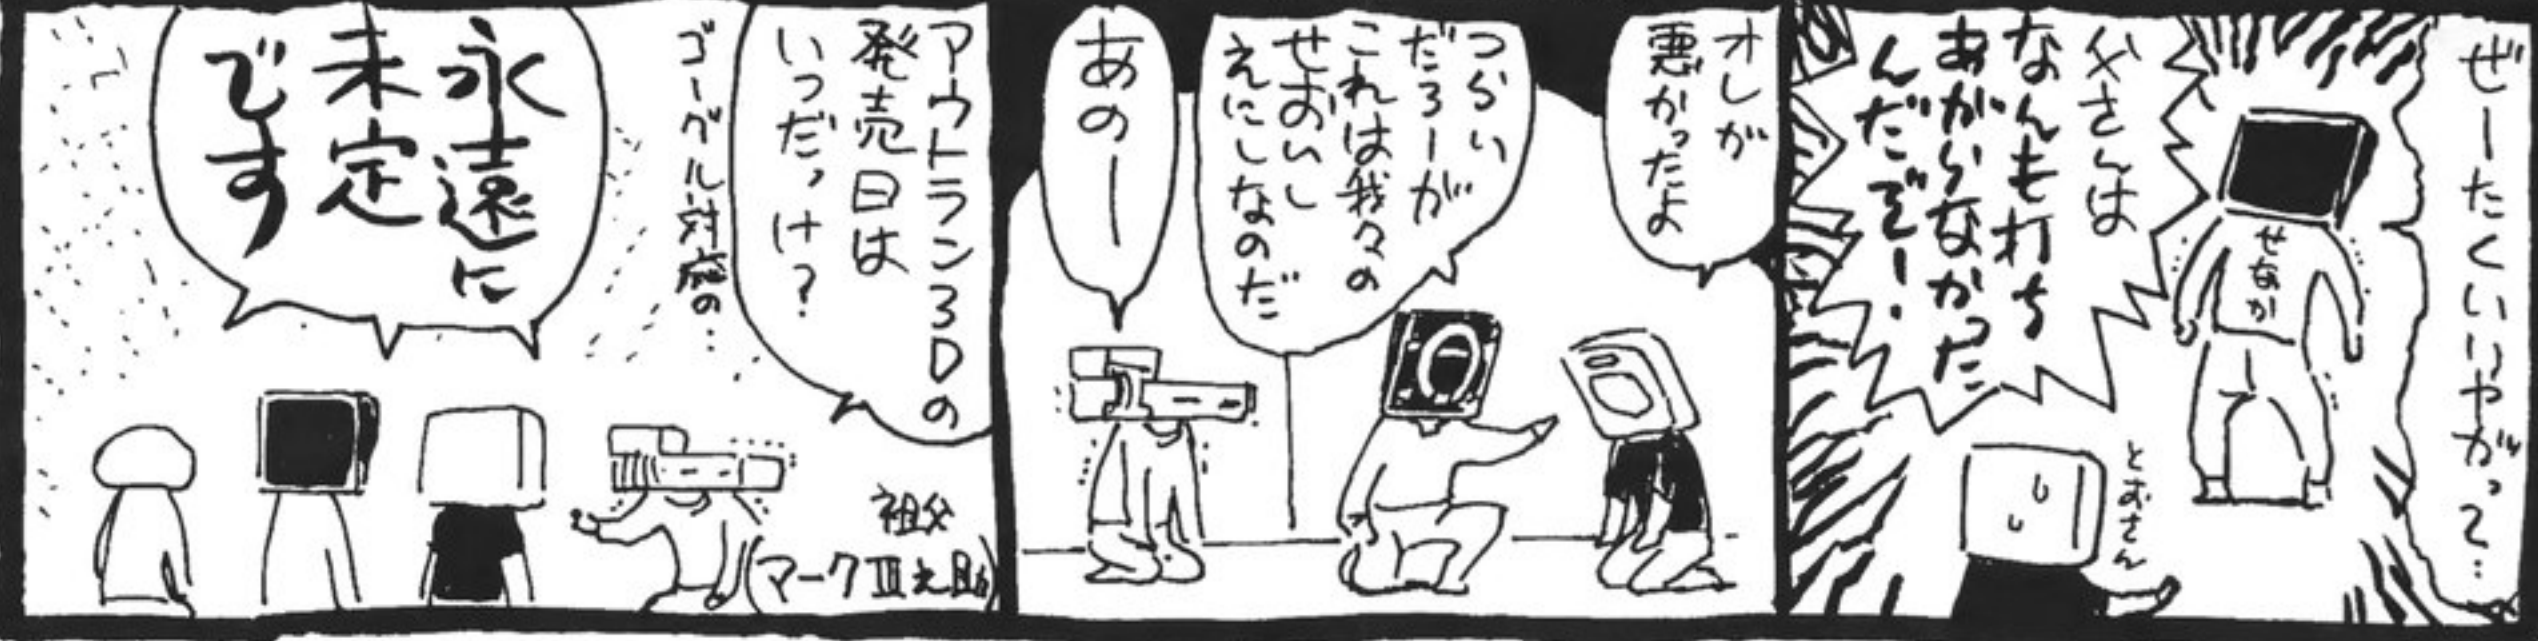 ぜーたくいいやがって…
せなか
父さんは
なんも打ち
あがらなかった
んだぞー!
とおさん
オレが
悪かったよ
つらい
だろーが
これは我々の
せおいし
えにしなのだ
あのー
アウトラン3Dの
発売日は
いつだっけ?
ゴーグル対応の…
祖父
(マークⅢ之助)
永遠に
未定
です